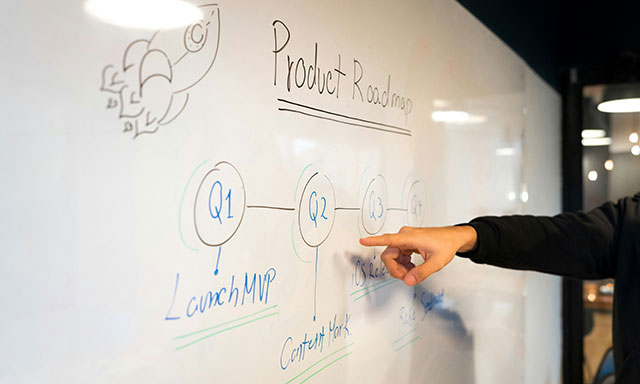 Product Roadmap
Q1 Q2 Q3 Q4
Launch MVP
Content Mark.
iOS